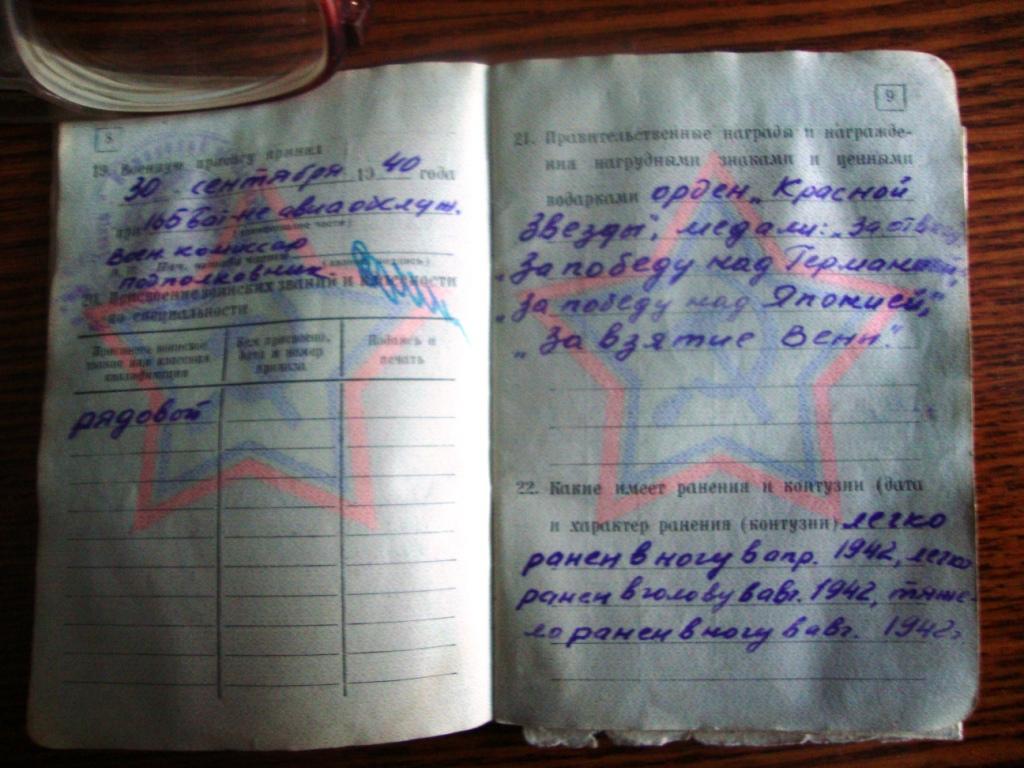 8
19. Военную присягу принял
30 сентября 1940 года
при 165 бат-не авиаобслуж.
Воен. комиссар
подполковник
20. Присвоение воинских званий и
по специальности
Присвоено воинское
звание или классная
квалификация
Кем присвоено,
дата и номер
приказа
Подпись и
печать
рядовой
9
21. Правительственные награды и награжде-
ния нагрудными знаками и ценными
подарками орден „Красной
Звезды", медали: „За отвагу",
„За победу над Германией",
„За победу над Японией",
„За взятие Вены".
22. Какие имеет ранения и контузии (дата
и характер ранения (контузии) легко
ранен в ногу в апр. 1942, легко
ранен в голову в авг. 1942, тяже-
ло ранен в ногу в авг. 1942г